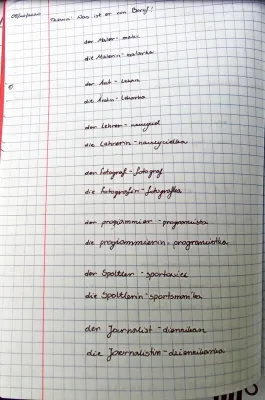 Thema: Was ist er von Beruf?
der Maler - malarz
die Malerin - malarka
der Arzt - lekarz
die Ärztin - lekarka
der Lehrer - nauczyciel
die Lehrerin - nauczycielka
der Fotograf - fotograf
die Fotografin - fotografka
der programmier - programista
die programmierin - programistka
der Spoltler - sportowiec
die Spoltlerin - sportsmenka
der Journalist - dziennikarz
die Journalistin - dziennikarka